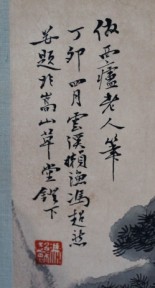 倣亞癯老人筆
丁卯四月雲溪懶漁馮超然
並題於嵩山草堂鐙下